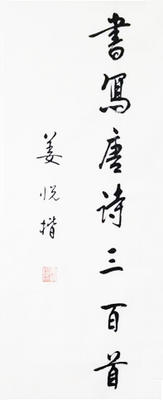 書寫唐诗三百首
姜悦揩